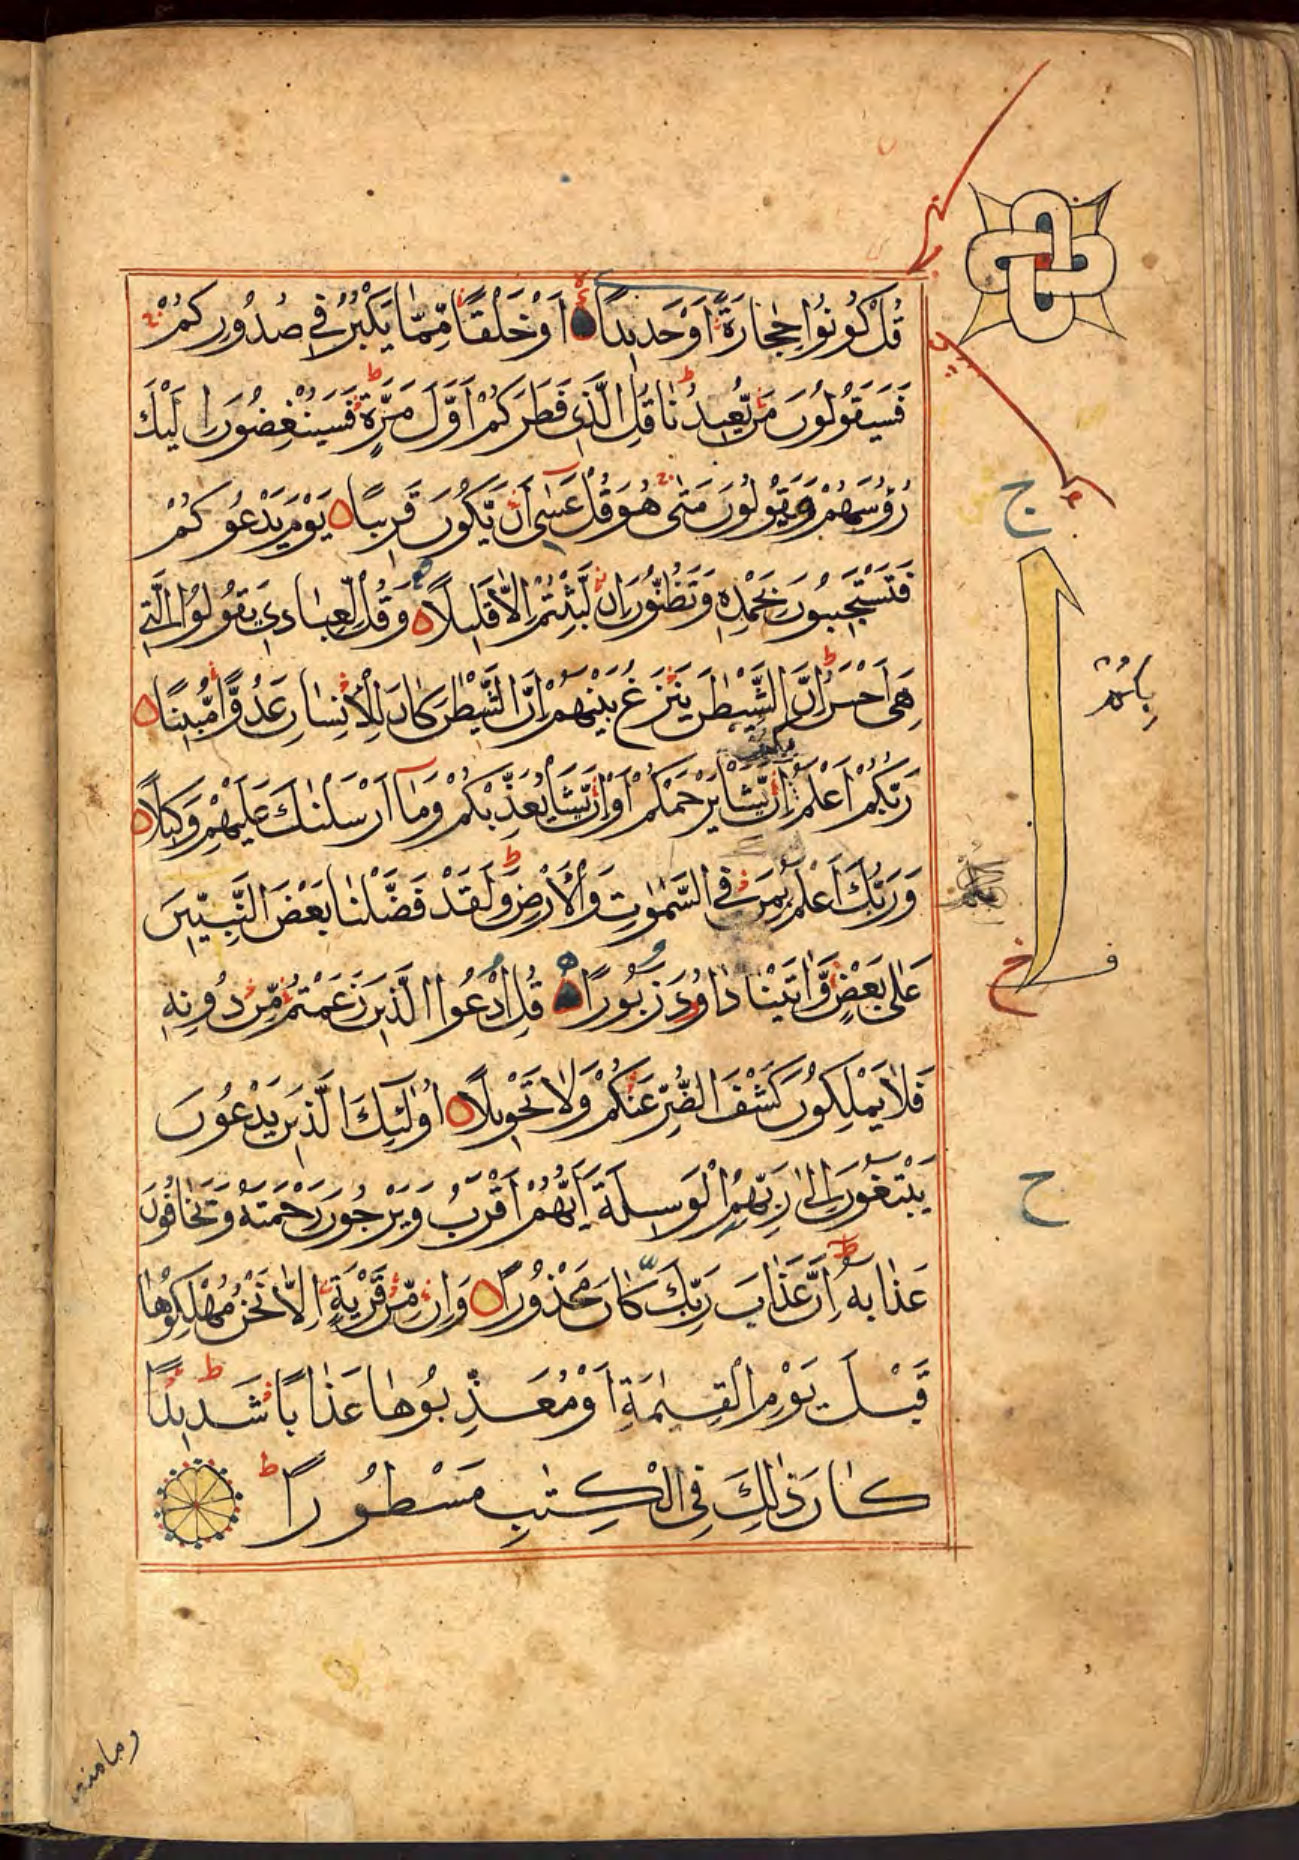 قُلْ كُونُوا حِجَارَةً اَوْ حَدِيدًا اَوْ خَلْقًا مِّمَّا يَكْبُرُ فِي صُدُورِكُمْ
فَسَيَقُولُونَ مَنْ يُّعِيدُنَا قُلِ الَّذِي فَطَرَكُمْ اَوَّلَ مَرَّةٍ فَسَيُنْغِضُونَ اِلَيْكَ
رُؤُسَهُمْ وَيَقُولُونَ مَتٰى هُوَ قُلْ عَسٰٓى اَنْ يَّكُونَ قَرِيبًا يَوْمَ يَدْعُوكُمْ
فَتَسْتَجِيبُونَ بِحَمْدِهٖ وَتَظُنُّونَ اِنْ لَّبِثْتُمْ اِلَّا قَلِيلًا وَقُلْ لِّعِبَادِي يَقُولُوا الَّتِي
هِيَ اَحْسَنُ اِنَّ الشَّيْطٰنَ يَنْزَغُ بَيْنَهُمْ اِنَّ الشَّيْطٰنَ كَانَ لِلْاِنْسَانِ عَدُوًّا مُّبِينًا
رَبُّكُمْ اَعْلَمُ اِنْ يَّشَا يَرْحَمْكُمْ اَوْ اِنْ يَّشَا يُعَذِّبْكُمْ وَمَآ اَرْسَلْنٰكَ عَلَيْهِمْ وَكِيلًا
وَرَبُّكَ اَعْلَمُ بِمَنْ فِي السَّمٰوٰتِ وَالْاَرْضِ وَلَقَدْ فَضَّلْنَا بَعْضَ النَّبِيّٖنَ
عَلٰى بَعْضٍ وَّاٰتَيْنَا دَاوُدَ زَبُورًا قُلِ ادْعُوا الَّذِينَ زَعَمْتُمْ مِّنْ دُونِهٖ
فَلَا يَمْلِكُونَ كَشْفَ الضُّرِّ عَنْكُمْ وَلَا تَحْوِيلًا اُولٰٓئِكَ الَّذِينَ يَدْعُونَ
يَبْتَغُونَ اِلٰى رَبِّهِمُ الْوَسِيلَةَ اَيُّهُمْ اَقْرَبُ وَيَرْجُونَ رَحْمَتَهٗ وَيَخَافُونَ
عَذَابَهٗ اِنَّ عَذَابَ رَبِّكَ كَانَ مَحْذُورًا وَاِنْ مِّنْ قَرْيَةٍ اِلَّا نَحْنُ مُهْلِكُوهَا
قَبْلَ يَوْمِ الْقِيٰمَةِ اَوْ مُعَذِّبُوهَا عَذَابًا شَدِيدًا
كَانَ ذٰلِكَ فِي الْكِتٰبِ مَسْطُورًا
ج
ح
وما منعنا